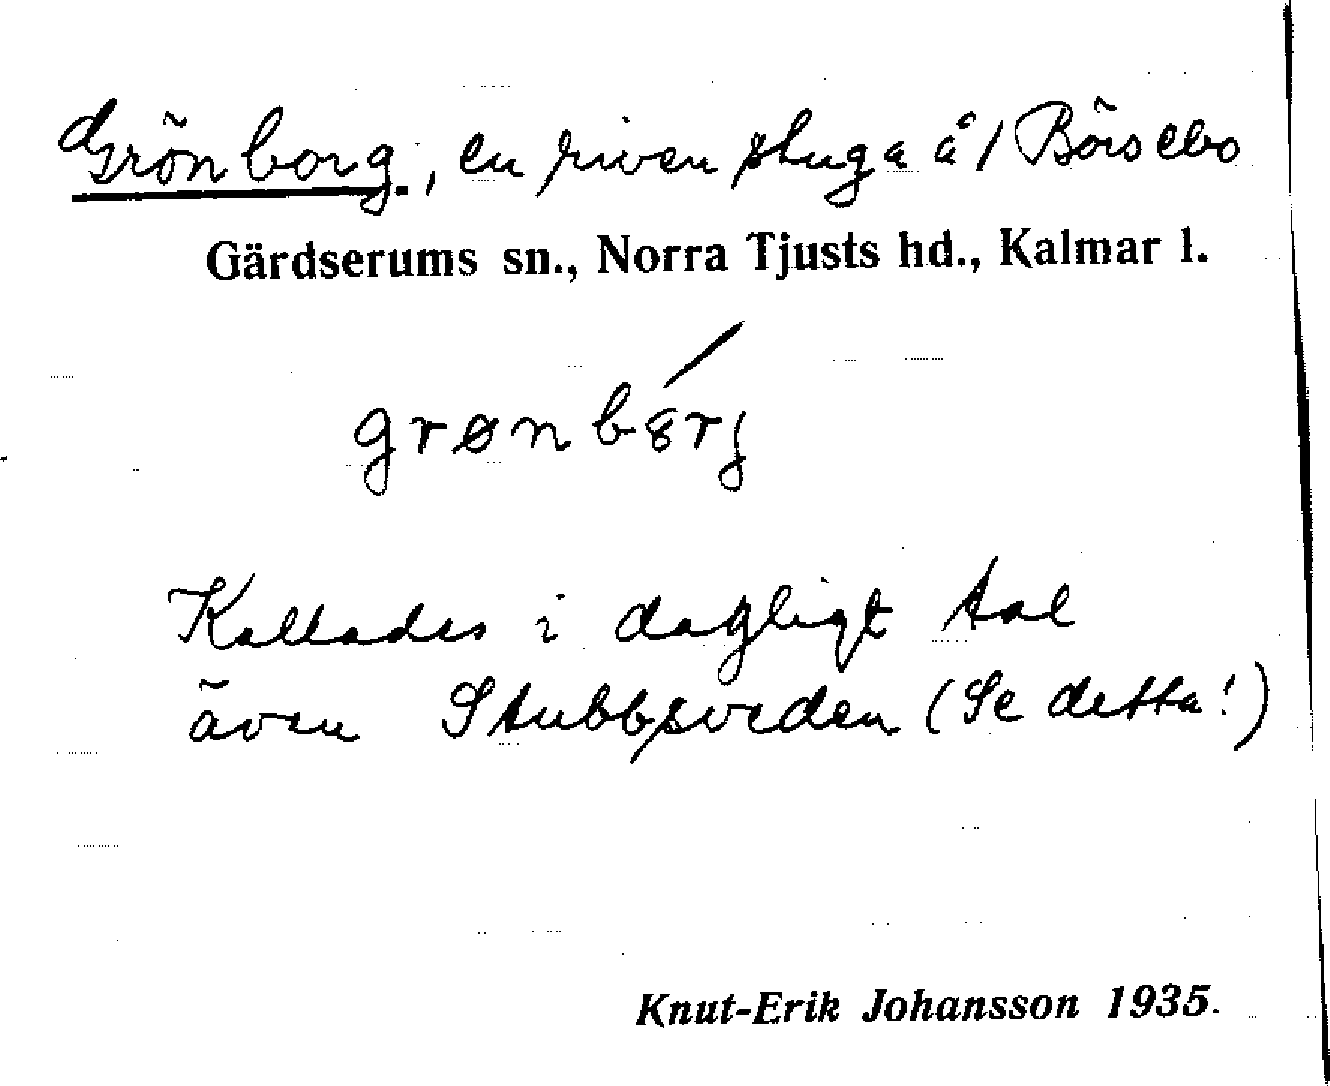 Grönborg, en riven stuga å/ Börsebo
Gärdserums sn., Norra Tjusts hd., Kalmar l.
grønbȣrj
Kallades i dagligt tal
även Stubbsveden (Se detta!)
Knut-Erik Johansson 1935.